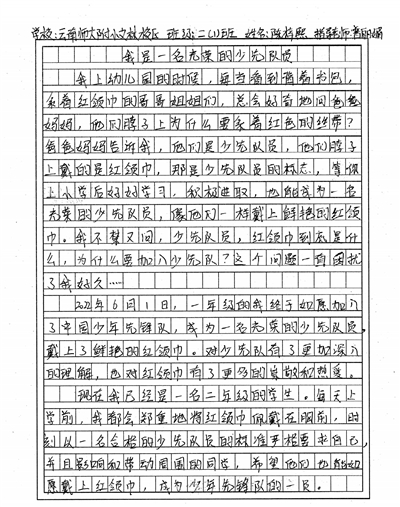 学校:云南师大附小文林校区 班级:二(1)班 姓名:陈梓熙 指导老师:
我是一名光荣的少先队员
我上幼儿园的时候，每当看到背着书包，
系着红领巾的哥哥姐姐们，总会好奇地问爸爸
妈妈，他们脖子上为什么要系着红色的丝带？
爸爸妈妈告诉我，他们是少先队员，他们脖子
上戴的是红领巾，那是少先队员的标志，等你
上小学后好好学习，积极进取，也能成为一名
光荣的少先队员，像他们一样戴上鲜艳的红领
巾。我不禁又问，少先队员，红领巾到底是什
么，为什么要加入少先队？这个问题一直困扰
了我好久……
2022年6月1日，一年级的我终于如愿加入
了中国少年先锋队，成为一名光荣的少先队员。
戴上了鲜艳的红领巾。对少先队有了更加深入
的理解，也对红领巾有了更多的崇敬和热爱。
现在我已经是一名二年级的学生。每天上
学前，我都会郑重地将红领巾佩戴在胸前，时
刻以一名合格的少先队员的标准严格要求自己，
并且影响和带动周围的同学，希望他们也能如
愿戴上红领巾，成为少年先锋队的一员。